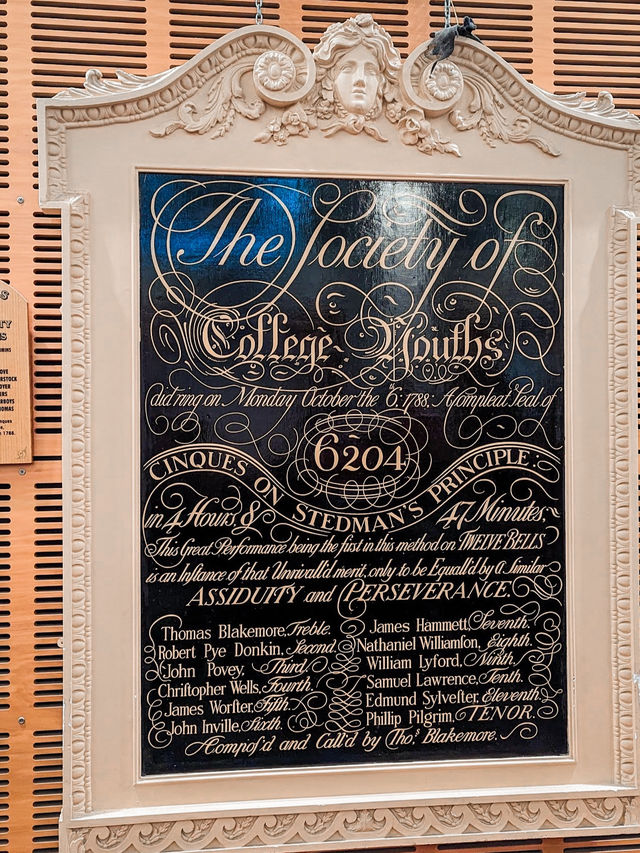 The Society of
College Youths
did ring on Monday October the 6: 1788: A Compleat Peal of
6204
CINQUES ON STEDMAN'S PRINCIPLE:
in 4 Hours, & 47 Minutes,
This Great Performance being the first in this method on TWELVE BELLS
is an Instance of that Unrivall'd merit, only to be Equall'd by a Similar
ASSIDUITY and PERSEVERANCE.
Thomas Blakemore, Treble. James Hammett, Seventh.
Robert Pye Donkin, Second. Nathaniel Williamſon, Eighth.
John Povey, Third, William Lyford, Ninth,
Chriſtopher Wells, Fourth, Samuel Lawrence, Tenth.
James Worſter, Fifth. Edmund Sylveſter, Eleventh
John Inville, Sixth. Phillip Pilgrim, TENOR.
Compos'd and Call'd by Tho.s Blakemore.
1788.